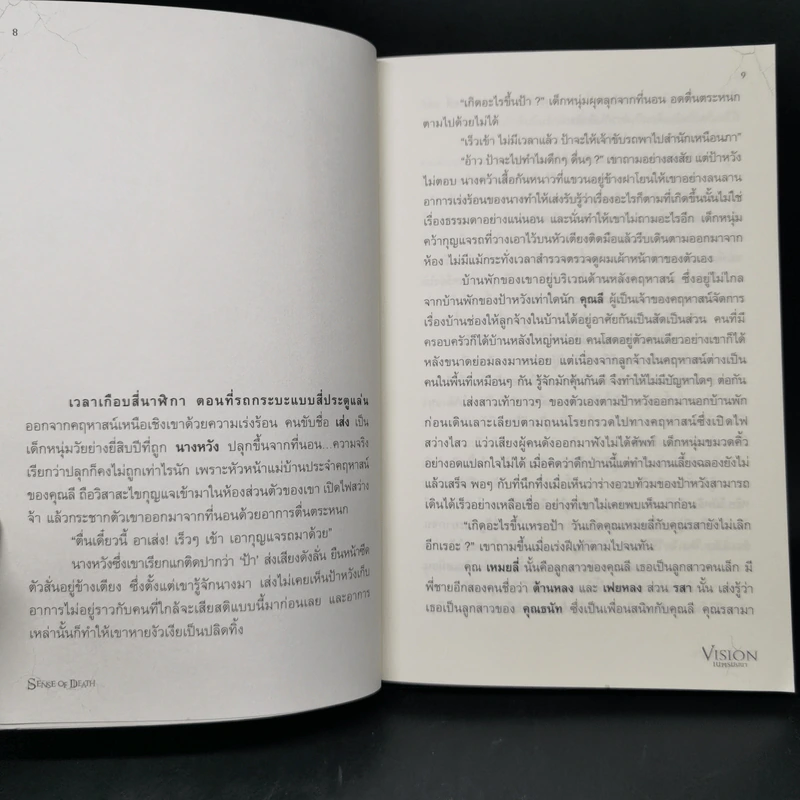 8
เวลาเกือบสี่นาฬิกา ตอนที่รถกระบะแบบสี่ประตูแล่น
ออกจากคฤหาสน์เหนือเชิงเขาด้วยความเร่งร้อน คนขับชื่อ เส่ง เป็น
เด็กหนุ่มวัยย่างยี่สิบปีที่ถูก นางหวัง ปลุกขึ้นจากที่นอน...ความจริง
เรียกว่าปลุกก็คงไม่ถูกเท่าไรนัก เพราะหัวหน้าแม่บ้านประจำคฤหาสน์
ของคุณลี ถือวิสาสะไขกุญแจเข้ามาในห้องส่วนตัวของเขา เปิดไฟสว่าง
จ้า แล้วกระชากตัวเขาออกมาจากที่นอนด้วยอาการตื่นตระหนก
“ตื่นเดี๋ยวนี้ อาเส่ง! เร็วๆ เข้า เอากุญแจรถมาด้วย”
นางหวังซึ่งเขาเรียกแกติดปากว่า ‘ป้า’ ส่งเสียงดังลั่น ยืนหน้าซีด
ตัวสั่นอยู่ข้างเตียง ซึ่งตั้งแต่เขารู้จักนางมา เส่งไม่เคยเห็นป้าหวังเก็บ
อาการไม่อยู่ราวกับคนที่ใกล้จะเสียสติแบบนี้มาก่อนเลย และอาการ
เหล่านั้นก็ทำให้เขาหายงัวเงียเป็นปลิดทิ้ง
SENSE OF DEATH
9
“เกิดอะไรขึ้นป้า ?” เด็กหนุ่มผุดลุกจากที่นอน อดตื่นตระหนก
ตามไปด้วยไม่ได้
“เร็วเข้า ไม่มีเวลาแล้ว ป้าจะให้เจ้าขับรถพาไปสำนักเหนือนภา”
“อ้าว ป้าจะไปทำไมดึกๆ ดื่นๆ ?” เขาถามอย่างสงสัย แต่ป้าหวัง
ไม่ตอบ นางคว้าเสื้อกันหนาวที่แขวนอยู่ข้างฝาโยนให้เขาอย่างลนลาน
อาการเร่งร้อนของนางทำให้เส่งรับรู้ว่าเรื่องอะไรก็ตามที่เกิดขึ้นนั้นไม่ใช่
เรื่องธรรมดาอย่างแน่นอน และนั่นทำให้เขาไม่ถามอะไรอีก เด็กหนุ่ม
คว้ากุญแจรถที่วางเอาไว้บนหัวเตียงติดมือแล้วรีบเดินตามออกมาจาก
ห้อง ไม่มีแม้กระทั่งเวลาสำรวจตรวจดูผมเผ้าหน้าตาของตัวเอง
บ้านพักของเขาอยู่บริเวณด้านหลังคฤหาสน์ ซึ่งอยู่ไม่ไกล
จากบ้านพักของป้าหวังเท่าใดนัก คุณลี ผู้เป็นเจ้าของคฤหาสน์จัดการ
เรื่องบ้านช่องให้ลูกจ้างในบ้านได้อยู่อาศัยกันเป็นสัดเป็นส่วน คนที่มี
ครอบครัวก็ได้บ้านหลังใหญ่หน่อย คนโสดอยู่ตัวคนเดียวอย่างเขาก็ได้
หลังขนาดย่อมลงมาหน่อย แต่เนื่องจากลูกจ้างในคฤหาสน์ต่างเป็น
คนในพื้นที่เหมือนๆ กัน รู้จักมักคุ้นกันดี จึงทำให้ไม่มีปัญหาใดๆ ต่อกัน
เส่งสาวเท้ายาวๆ ของตัวเองตามป้าหวังออกมานอกบ้านพัก
ก่อนเดินเลาะเลียบตามถนนโรยกรวดไปทางคฤหาสน์ซึ่งเปิดไฟ
สว่างไสว แว่วเสียงผู้คนดังออกมาฟังไม่ได้ศัพท์ เด็กหนุ่มขมวดคิ้ว
อย่างอดแปลกใจไม่ได้ เมื่อคิดว่าดึกป่านนี้แต่ทำไมงานเลี้ยงฉลองยังไม่
แล้วเสร็จ พอๆ กับที่นึกทึ่งเมื่อเห็นว่าร่างอวบท้วมของป้าหวังสามารถ
เดินได้เร็วอย่างเหลือเชื่อ อย่างที่เขาไม่เคยพบเห็นมาก่อน
“เกิดอะไรขึ้นเหรอป้า วันเกิดคุณเหมยลี่กับคุณรสายังไม่เลิก
อีกเรอะ ?” เขาถามขึ้นเมื่อเร่งฝีเท้าตามไปจนทัน
คุณ เหมยลี่ นั้นคือลูกสาวของคุณลี เธอเป็นลูกสาวคนเล็ก มี
พี่ชายอีกสองคนชื่อว่า ต้านหลง และ เฟยหลง ส่วน รสา นั้น เส่งรู้ว่า
เธอเป็นลูกสาวของ คุณธนัท ซึ่งเป็นเพื่อนสนิทกับคุณลี คุณรสามา
VISION